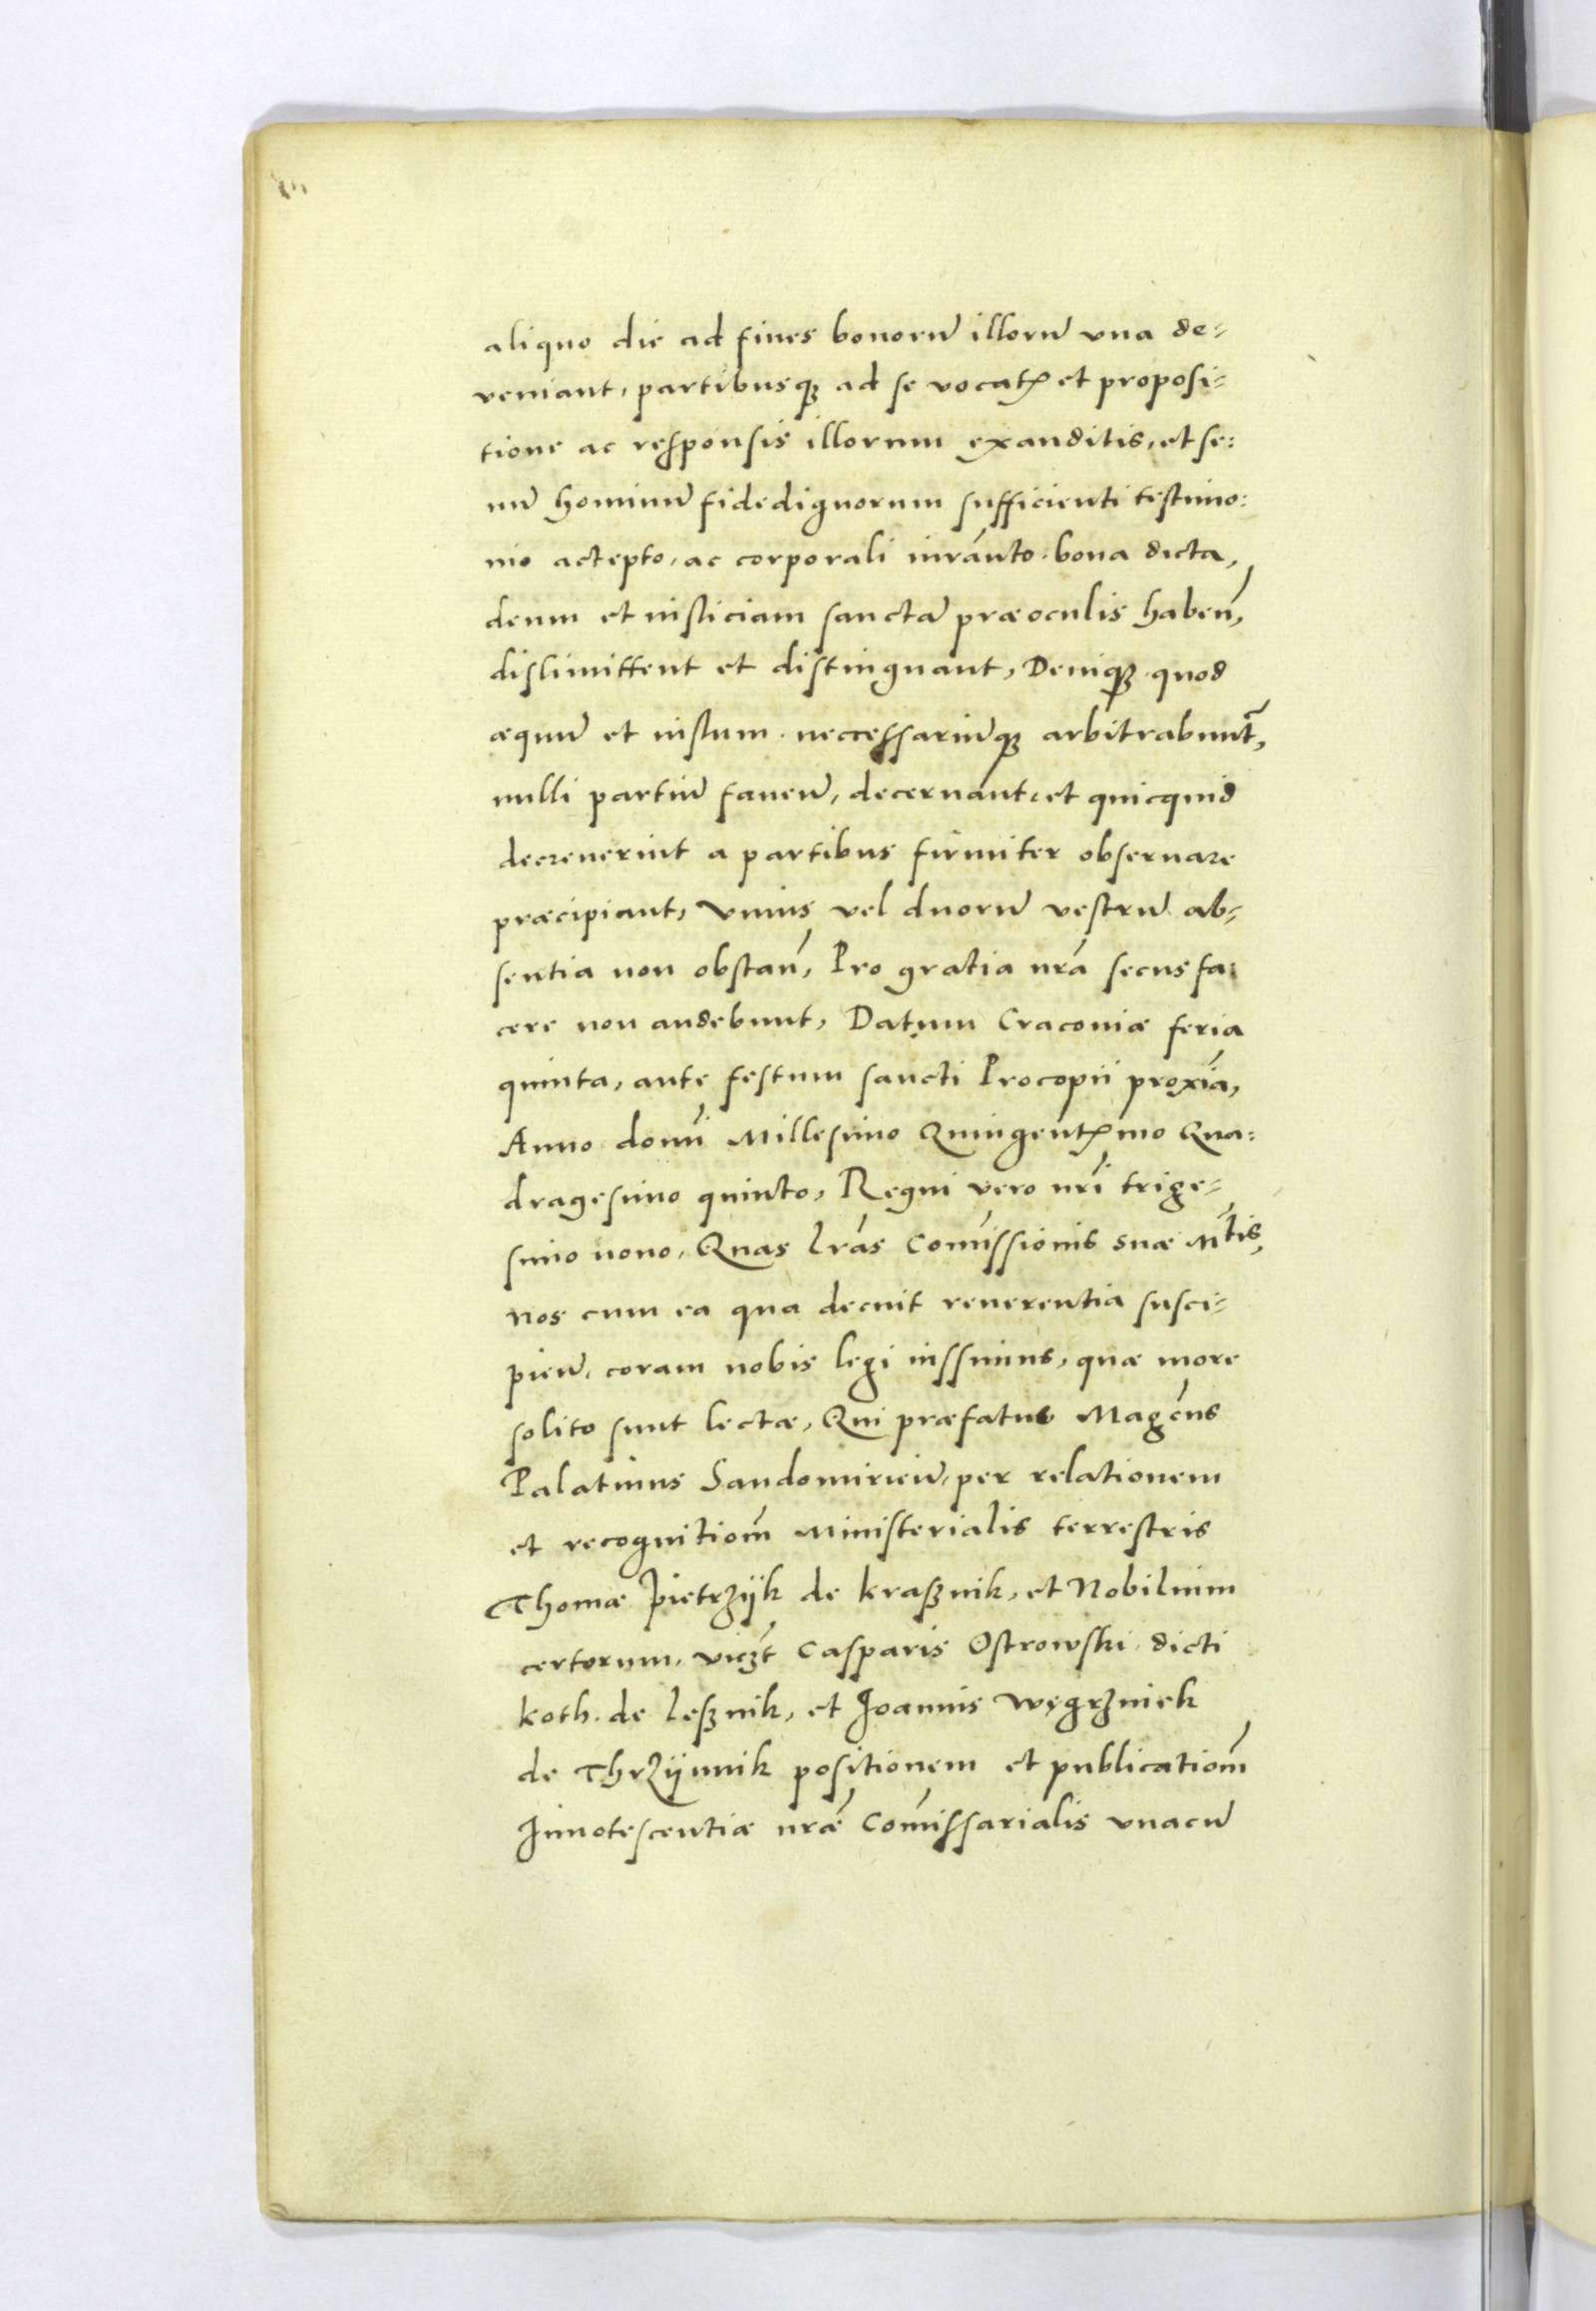 aliquo die ad fines bonorū illorū vna de=
veniant, partibusq; ad se vocatꝭ et proposi=
tione ac responsis illorum exauditis, et se:
nū hominū fidedignorum sufficienti testimo:
nio accepto, ac corporali iurāнto bona dicta,
deum et iusticiam sanctā præ oculis habeñ,
dislimittent et distinguant, Deniq; quod
æquū et iustum neccessariūq; arbitrabuntr̄,
nulli partiū faueñ, decernant, et quicquid
decreuerint a partibus firmiter obseruare
præcipiant, Vnius vel duorū vestrū ab=
sentia non obstañ, Pro gratia nrā secus fa:
cere non audebunt, Datum Cracouiæ feria
quinta, ante festum sancti Procopii proxīa,
Anno domī Millesimo Quingentꝭmo Qua:
dragesimo quinto, Regni vero nrī trige=
simo nono, Quas lrās Comīssionis suæ Mtis,
nos cum ea qua decuit reuerentia susci=
pieñ, coram nobis legi iussimus, quæ more
solito sunt lectæ, Qui præfatus Magc̄us
Palatinus Sandomirieñ, per relationem
et recognitiom̄ Ministerialis terrestris
Thomæ Pietrzÿk de kraßnik, et Nobilium
certorum, viczt̄ Casparis Ostrowski dicti
koth de leßnik, et Joannis Węgrzinek
de Thrzÿnnik positionem et publicatiom̄
Innotescentiæ nrǣ Comīssarialis vnacū